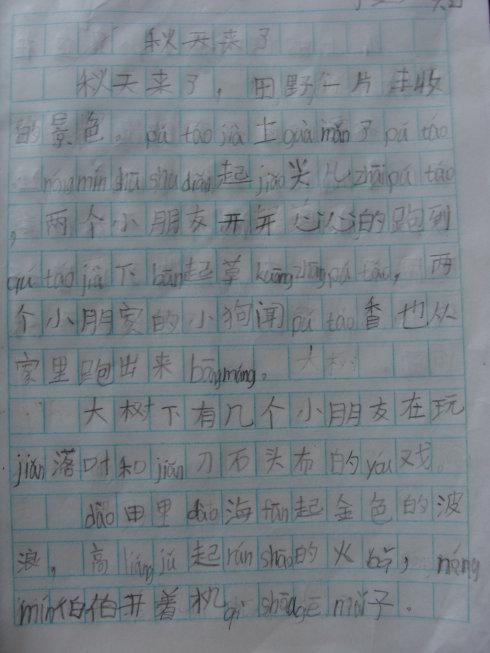 秋天来了
秋天来了，田野一片丰收
的景色。pú táo jià 上 guà mǎn 了 pú táo
nóng mín shū shu diǎn 起 jiǎo 尖儿 zhāi pú táo
，两个小朋友开开心心的跑到
pú táo jià 下 bān 起草 kuāng zhuāng pú táo，两
个小朋家的小狗闻 pú táo 香也从
家里跑出来 bāng máng。大树
大树下有几个小朋友在玩
jiǎn 落叶和 jiǎn 刀石头布的 yóu 戏。
dào 田里 dào 海 fān 起金色的波
浪，高 liáng jǔ 起 rán shāo 的火 bǎ，nóng
mín 伯伯开着机 qì shōu gē dào 子．